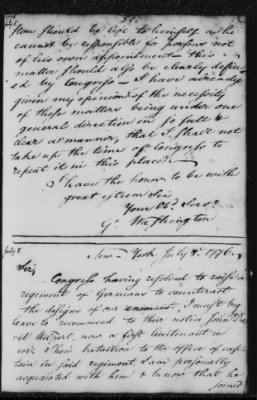 31.
tion should be left to himself as he
cannot be responsible for persons not
of his own appointment this
matter should also be clearly defin-
ed by Congress - I have already
given my opinion of the necessity
of these matters being under one
general direction in so full &
clear a manner, that I shall not
take up the time of Congress to
repeat it in this place -
I have the honor to be with
great esteem Sir
Your Obt. Servt
G. Washington
July 8
New-York July 8. 1776.
Sir,
Congress having resolved to raise a
regiment of Germans to counteract
the designs of our enemies, I must beg
leave to recommend to their notice John Da-
vid Wilpert, now a first lieutenant in
battalion to the office of cap-
tain in said regiment. I am personally
acquainted with him & know that he
joined